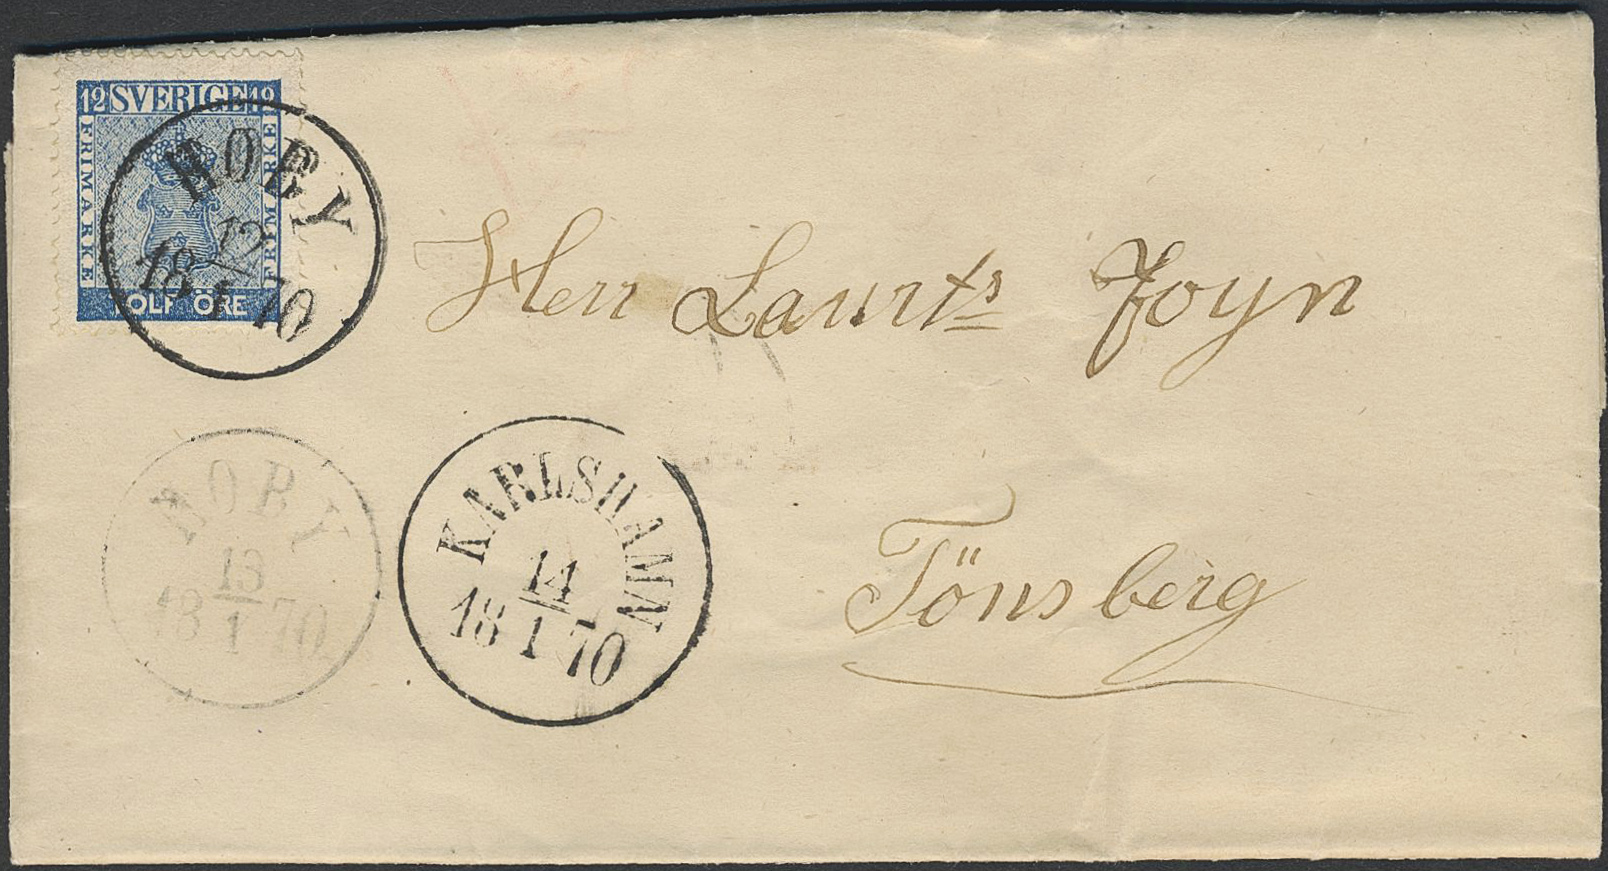 12 SVERIGE 12
FRIMARKE
FRIMARKE
TOLF ÖRE
12
18 1 70
Herr Laurts Foyn
13
18 1 70
KARLSHAMN
14
18 1 70
Tönsberg